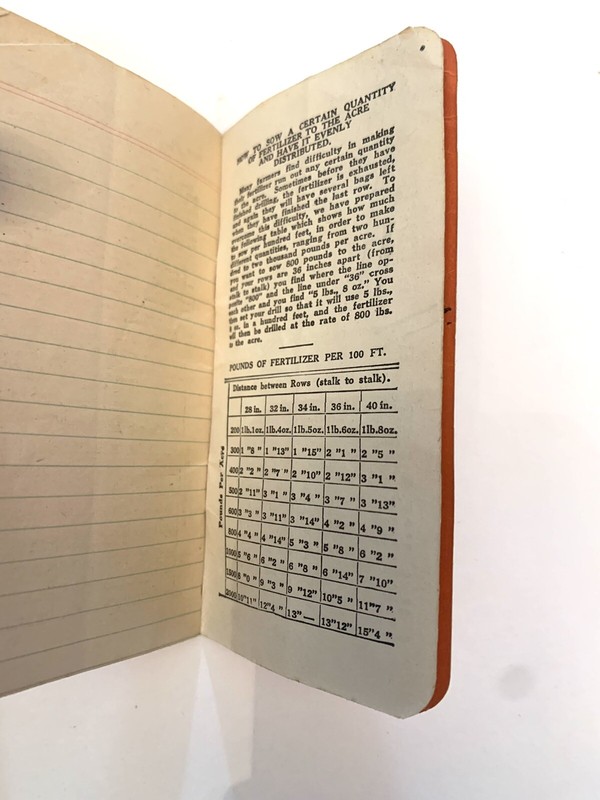 HOW TO SOW A CERTAIN QUANTITY
OF FERTILIZER TO THE ACRE
AND HAVE IT EVENLY
DISTRIBUTED.
Many farmers find difficulty in making
their fertilizer sow out any certain quantity
to the acre. Sometimes before they have
finished drilling, the fertilizer is exhausted,
and again they will have several bags left
when they have finished the last row. To
overcome this difficulty, we have prepared
the following table which shows how much
to sow per hundred feet, in order to make
different quantities, ranging from two hun-
dred to two thousand pounds per acre. If
you want to sow 800 pounds to the acre,
and your rows are 36 inches apart (from
stalk to stalk) you find where the line op-
"800" and the line under "36" cross
each other and you find "5 lbs., 8 oz." You
then set your drill so that it will use 5 lbs.,
8 oz. in a hundred feet, and the fertilizer
will then be drilled at the rate of 800 lbs.
to the acre.
POUNDS OF FERTILIZER PER 100 FT.
Distance between Rows (stalk to stalk).
28 in. 32 in. 34 in. 36 in. 40 in.
Pounds Per Acre
200 1lb.1oz. 1lb.4oz. 1lb.5oz. 1lb.6oz. 1lb.8oz.
300 1 "8 " 1 "13" 1 "15" 2 "1 " 2 "5 "
400 2 "2 " 2 "7 " 2 "10" 2 "12" 3 "1 "
500 2 "11" 3 "1 " 3 "4 " 3 "7 " 3 "13"
600 3 "3 " 3 "11" 3 "14" 4 "2 " 4 "9 "
800 4 "4 " 4 "14" 5 "3 " 5 "8 " 6 "2 "
1000 5 "6 " 6 "2 " 6 "8 " 6 "14" 7 "10"
1500 8 "0 " 9 "3 " 9 "12" 10"5 " 11"7 "
2000 10"11" 12"4 " 13"— 13"12" 15"4 "